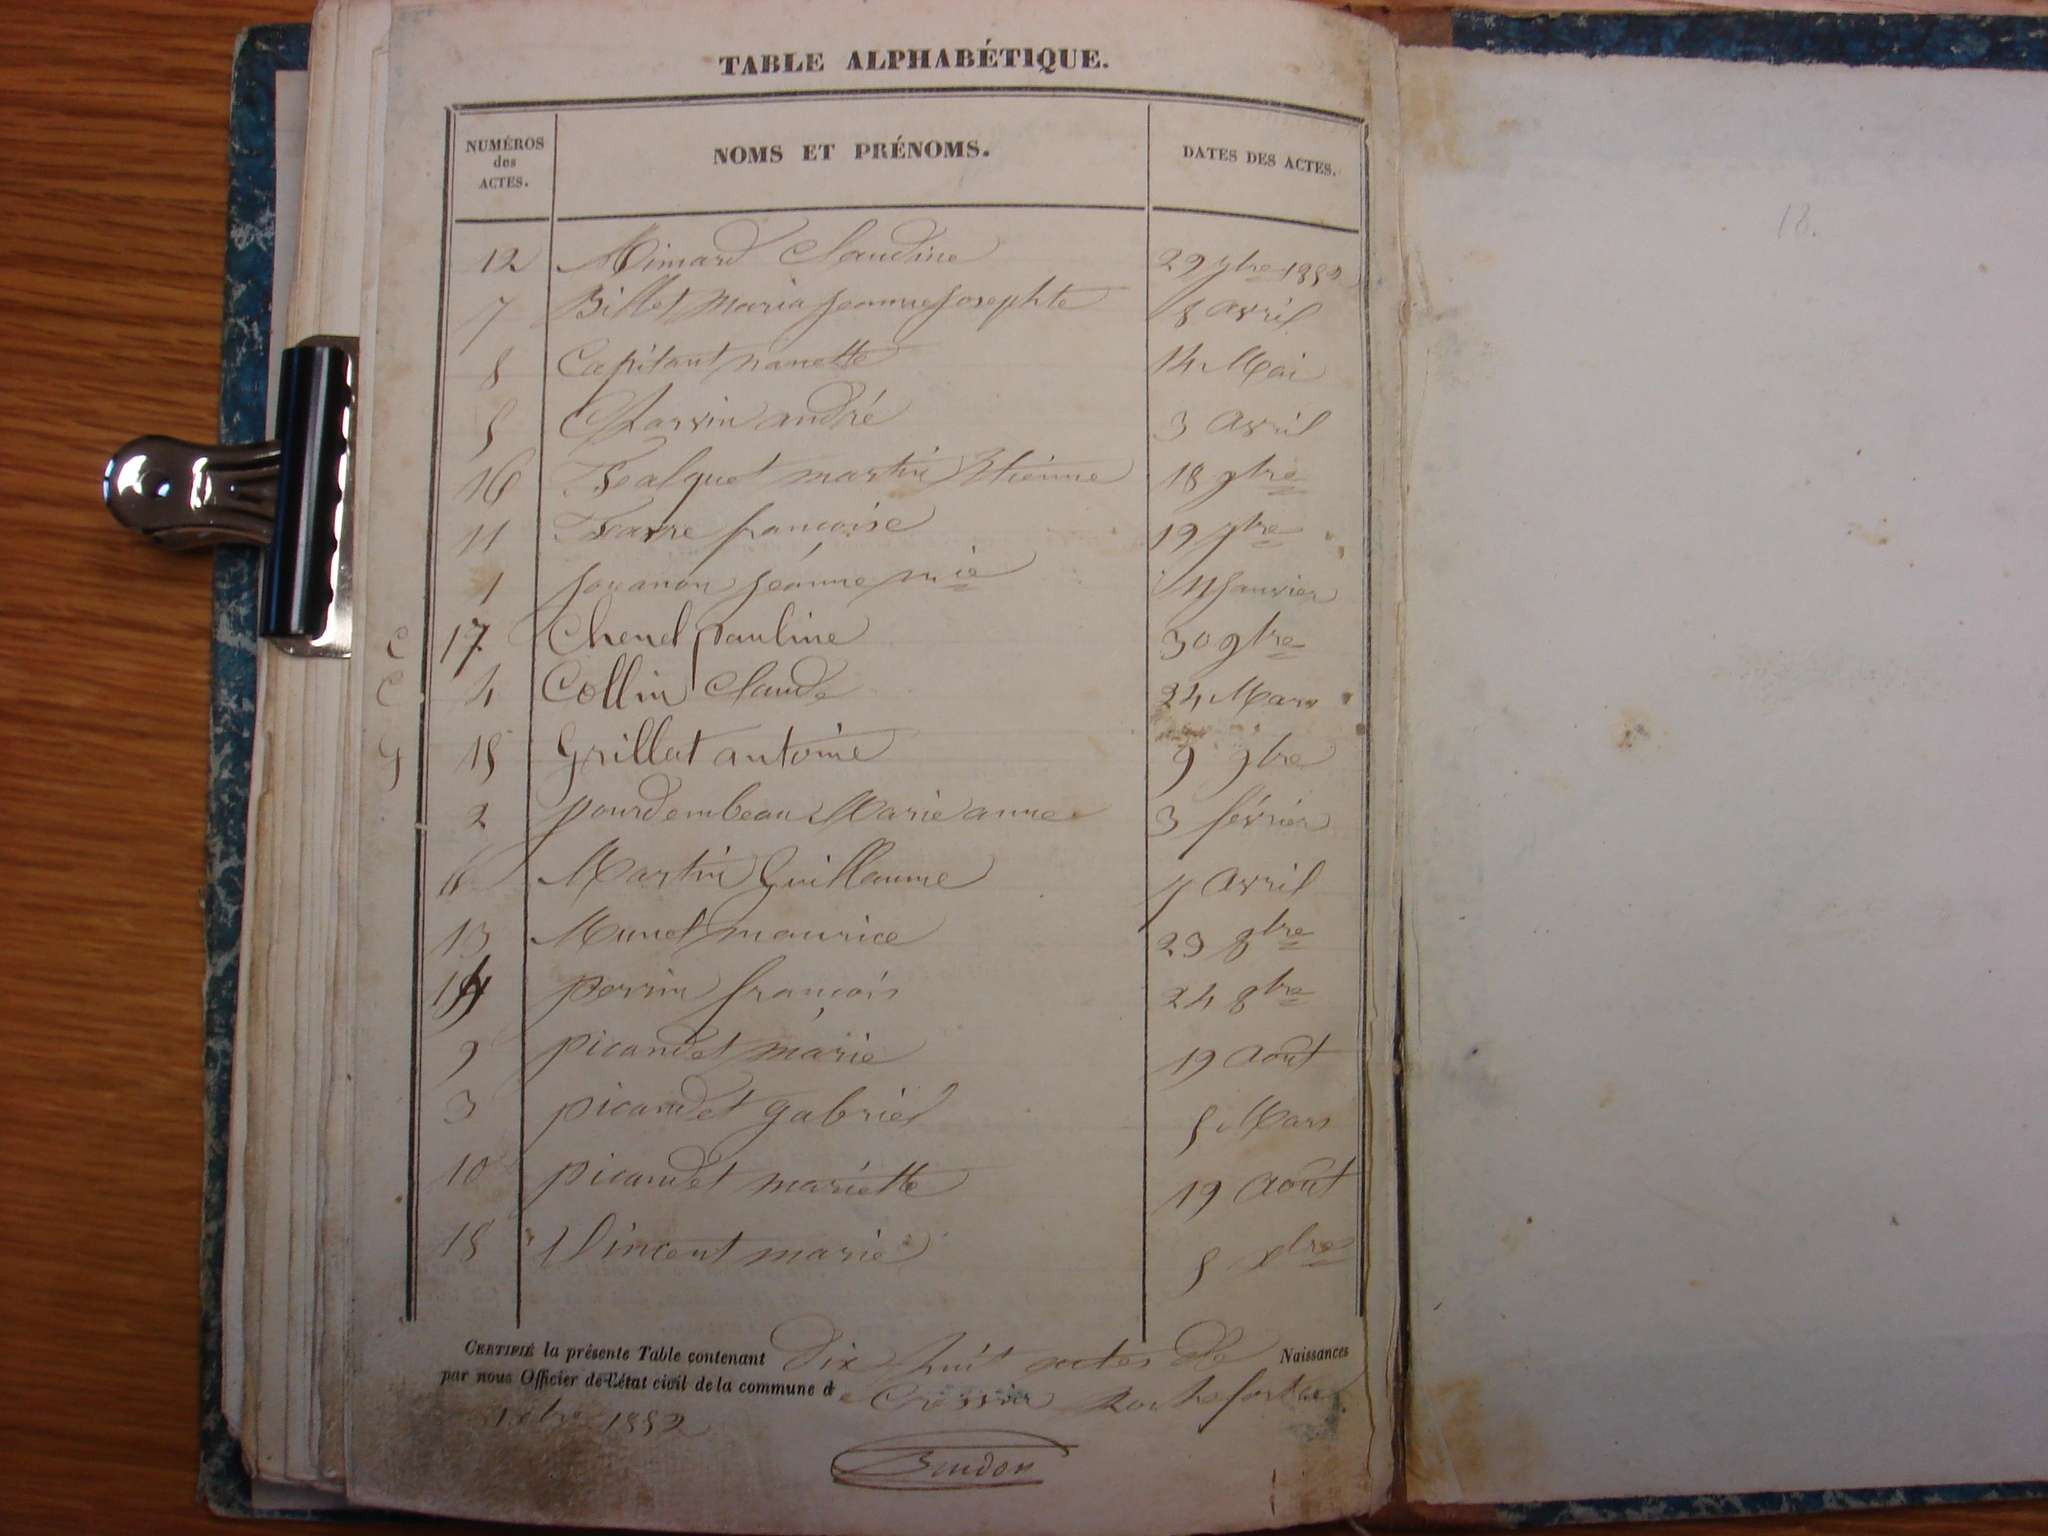 TABLE ALPHABÉTIQUE.
NUMÉROS des ACTES. NOMS ET PRÉNOMS. DATES DES ACTES.
12 Mimard Claudine 29 7bre 1852
7 Billet Maria Jeanne Josephte 8 avril
8 Capitant nanette 14 Mai
5 andré 3 avril
16 martin Etienne 18 9bre
11 françoise 19 7bre
1 Jouanon Jeanne mie 11 Janvier
C 17. Chenel pauline 30 9bre
C 4 Collin Claude 24 Mars
G 15 Grillat antoine 9 9bre
2 pourdembeau Marie anne 3 février
6 Martin Guillaume 7 avril
13 Munet maurice 23 8bre
14 perrin françois 24 8bre
9 picandet marie 19 aout
3 picandet gabriel 5 Mars
10 picandet mariette 19 août
18 Vincent marie 5 Xbre
CERTIFIÉ la présente Table contenant Dix huit actes de Naissances
par nous Officier de l'état civil de la commune de Rochefort
1852
18.